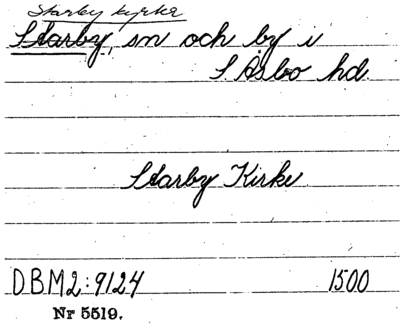 Starby kyrka
Starby, sn och by i
S Åsbo hd.
Starby Kirke
DBM2:9124 1500
Nr 5519.